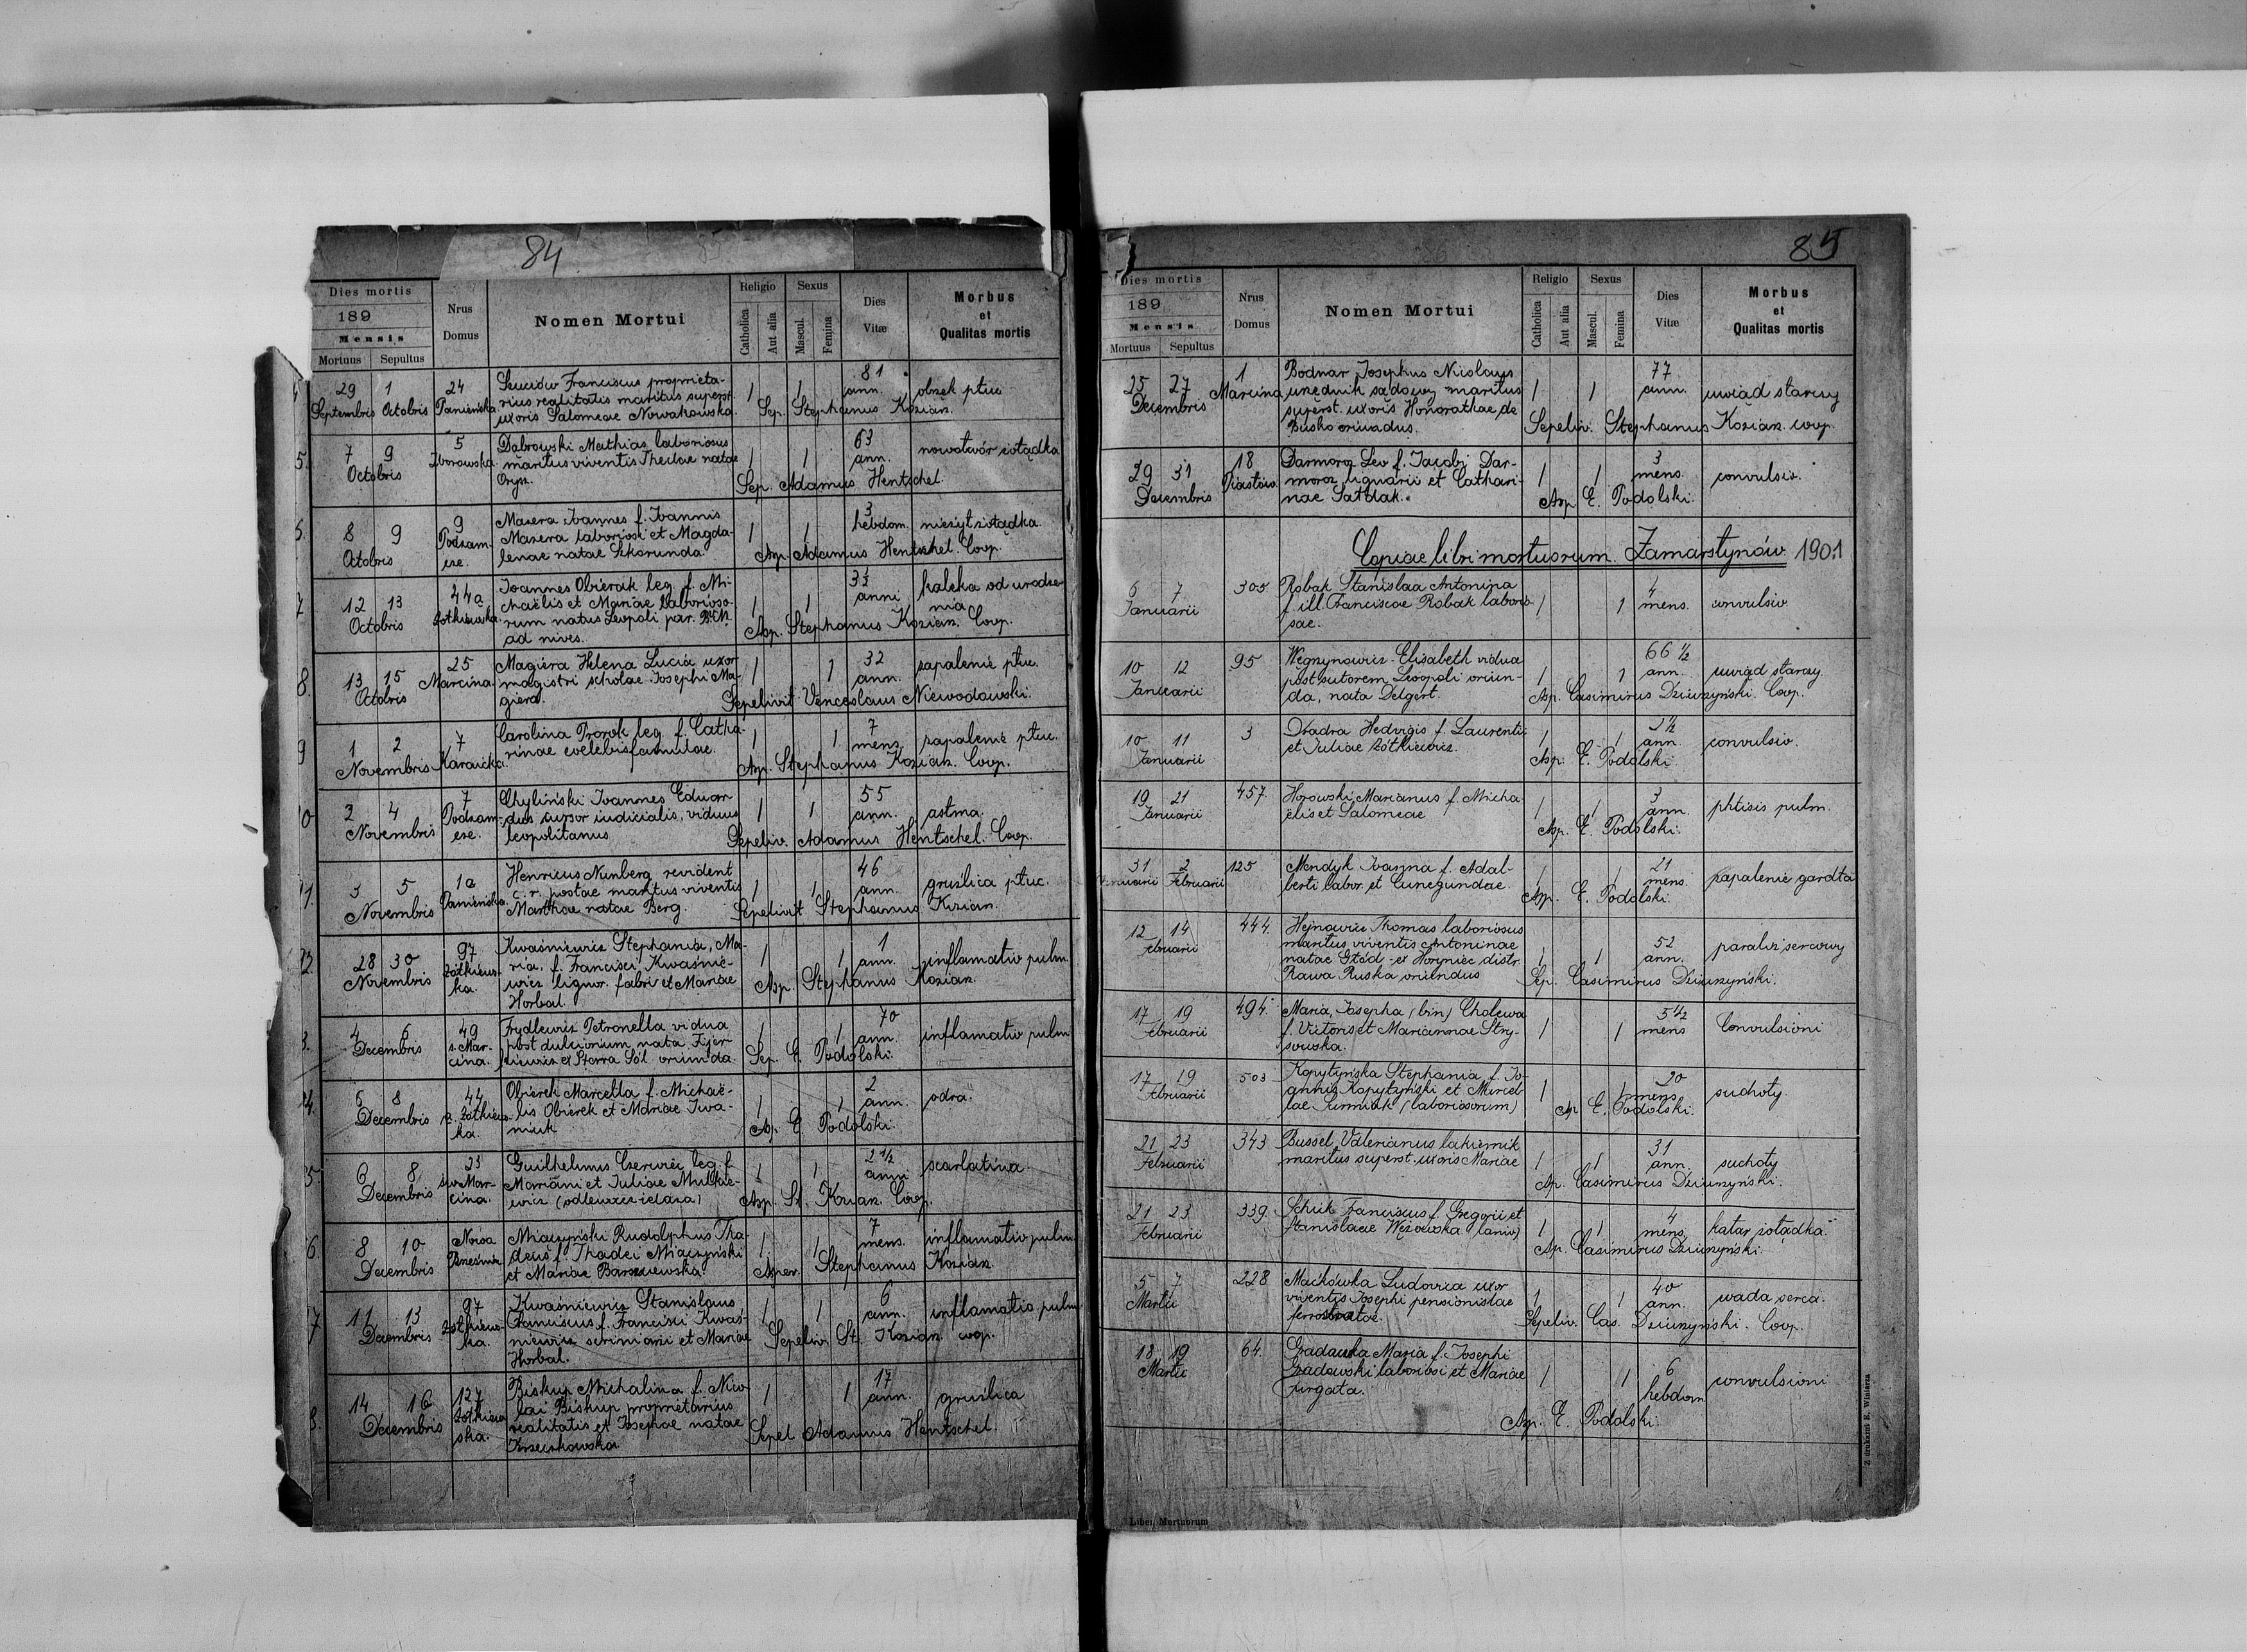 84
Dies mortis
189
Mensis
Mortuus Sepultus
Nrus Domus
Nomen Mortui
Religio
Catholica
Aut alia
Sexus
Mascul.
Femina
Dies Vitæ
Morbus
et
Qualitas mortis
29 1 24 Franciscus proprieta- 1 1 81 ann. obrzęk płuc
Septembris Octobris Panieńska rius realitatis maritus superst.
uxoris Salomeae Nowakowska. Sep. Stephanus Kozian.
5. 7 9 5 Dąbrowski Mathias laboriosus 1 1 63 ann. nowotwór żołądka
Octobris Zborowska. maritus viventis Theclae natae
Orysz. Sep. Adamus Hentschel.
8 9 9 Mazera Ioannes f. Ioannis 1 1 3 hebdom. nieżyt żołądka
Octobris Podzam- Mazera laboriosi et Magda-
cze. lenae natae Sikorunda. Asp. Adamus Hentschel. Coop.
7. 12 13 44a Ioannes Obierak leg. f. Mi- 1 1 3½ anni kaleka od urodze-
Octobris Żółkiewska. chaëlis et Mariae laborioso- nia
rum natus Leopoli par. B.V.M. Asp. Stephanus Kozian. Coop.
ad nives.
8. 13 15 25 Magiera Helena Lucia uxor 1 1 32 ann. zapalenie płuc.
Octobris Marcina. magistri scholae Josephi Ma-
giera. Sepelivit Venceslaus Niewodowski.
9 1 2 7 Carolina Prorok leg. f. Catha- 1 1 7 mens. zapalenie płuc.
Novembris rinae coelebis famulae.
Asp. Stephanus Kozian. Coop.
2 4 7 Chyliński Ioannes Eduar- 1 1 55 ann. astma.
Novembris Podzam- dus cursor iudicialis, viduus
cze. leopolitanus Sepeliv. Adamus Hentschel. Coop.
3 5 1a Henricus Nunberg revident 1 1 46 ann. gruźlica płuc.
Novembris Panieńska. c. r. postae maritus viventis
Marthae natae Berg. Sepelivit Stephanus Kozian.
28 30 97 Kwaśniewicz Stephania, Ma- 1 1 1 ann. inflamatio pulm.
Novembris Żółkiews- ria, f. Francisci Kwaśnie-
ka. wicz lignor. fabri et Mariae Asp. Stephanus Kozian.
Horbal.
4 6 49 Frydlewicz Petronella vidua 1 1 70 ann. inflamatio pulm.
Decembris s. Mar- post dulciorium, nata
cina. ex Starra Sól oriunda. Sep. E. Podolski.
6 8 44 Obierek Marcella f. Michaë- 1 1 2 ann. odra.
Decembris Żółkiews- lis Obierek et Mariae Iwa-
ka. niuk Asp. E. Podolski.
6 8 23 Guilhelmus Czerwiec leg. f. 1 1 2½ anni scarlatina.
Decembris św. Mar- Mariani et Juliae Mulkie-
cina. wicz (odlewacz żelaza) Asp. St. Kozian. Coop.
8 10 Nowa Miaczyński Rudolphus Tha- 1 1 7 mens. inflamatio pulm
Decembris deus f. Thadei Miaczyński
et Mariae Barszczewska. Asper. Stephanus Kozian.
7 11 13 97 Kwaśniewicz Stanislaus 1 1 6 ann. inflamatio pulm
Decembris Żółkiews- Franciscus f. Francisci Kwaś-
ka. niewicz scriniarii et Mariae Sepeliv. St. Kozian. coop.
Horbal.
14 16 127 Biskup Michalina f. Nico- 1 1 17 ann. gruźlica
Decembris Żółkiew- lai Biskup proprietarius
ska. realitatis et Josephae natae Sepel. Adamus Hentschel.
Krzeczkowska
85
Dies mortis
189
Mensis
Mortuus Sepultus
Nrus Domus
Nomen Mortui
Religio
Catholica
Aut alia
Sexus
Mascul.
Femina
Dies Vitæ
Morbus
et
Qualitas mortis
25 27 1 Bodnar Josephus Nicolaus 1 1 77 ann. uwiąd starczy
Decembris Marcina urzędnik sądowy maritus
superst. uxoris Honorathae de
Busko oriundus. Sepeliv. Stephanus Kozian. coop.
29 31 18 Darmoroz Leo f. Jacobi Dar- 1 1 3 mens. convulsio.
Decembris Piastów. moroz lignarii et Cathari-
nae Sałdak. Asp E. Podolski.
Copiae libri mortuorum. Zamarstynów. 1901
6 7 305 Robak Stanislaa Antonina 1 1 4 mens. convulsio
Januarii f. ill. Franciscae Robak laborio-
sae.
10 12 95 Węgrzynowicz Elisabeth vidua 1 1 66 ½ ann. uwiąd starczy.
Januarii post sutorem Leopoli oriun-
da, nata Delgert. Asp. Casimirus Dziurzyński. Coop.
10 11 3 Dziadra Hedvigis f. Laurentii 1 1 2½ ann. convulsio.
Januarii et Juliae Żółkiewicz. Asp. E. Podolski.
19 21 457 Horowski Marianus f. Micha- 1 1 3 ann. phtisis pulm.
Januarii ëlis et Salomeae Asp. E. Podolski.
31 2 125 Mendyk Ioanna f. Adal- 1 1 21 mens. zapalenie gardła
Februarii berti labor. et Cunegundae. Asp. E. Podolski.
12 14 444. Hejnowicz Thomas laboriosus 1 1 52 ann. paraliż sercowy
Februarii maritus viventis Antoninae
natae Głód ex Horyniec distr.
Rawa Ruska oriundus Sep. Casimirus Dziurzyński.
17 19 494. Maria, Josepha (bin) Cholewa 1 1 5½ mens Convulsioni
Februarii f. Victoris et Mariannae Stry-
sowska.
17 19 503 Kopytyńska Stephania f. Io- 1 1 20 mens suchoty.
Februarii annis Kopytyński et Marcel-
lae (laboriosorum) Asp E. Podolski.
21 23 343 Bussel Valerianus lakiernik 1 1 31 ann. suchoty
Februarii maritus superst. uxoris Mariae
Asp. Casimirus Dziurzyński.
21 23 339 Schik Franciscus f. Gregorii et 1 1 4 mens. katar żołądka.
Februarii Stanislaae Węzowska (lanio)
Asp. Casimirus Dziurzyński.
5 7 228 Maćkówka Ludovica uxor 1 1 40 ann. wada serca.
Martii viventis Josephi pensionistae
ferrostratae. Sepeliv. Cas. Dziurzyński. Coop.
18 19 64. Gradowska Maria f. Josephi 1 1 6 hebdom convulsioni
Martii Gradowski laboriosi et Mariae
Furgata.
Asp. E. Podolski.
Liber Mortuorum
Z drukarni E. Winiarza